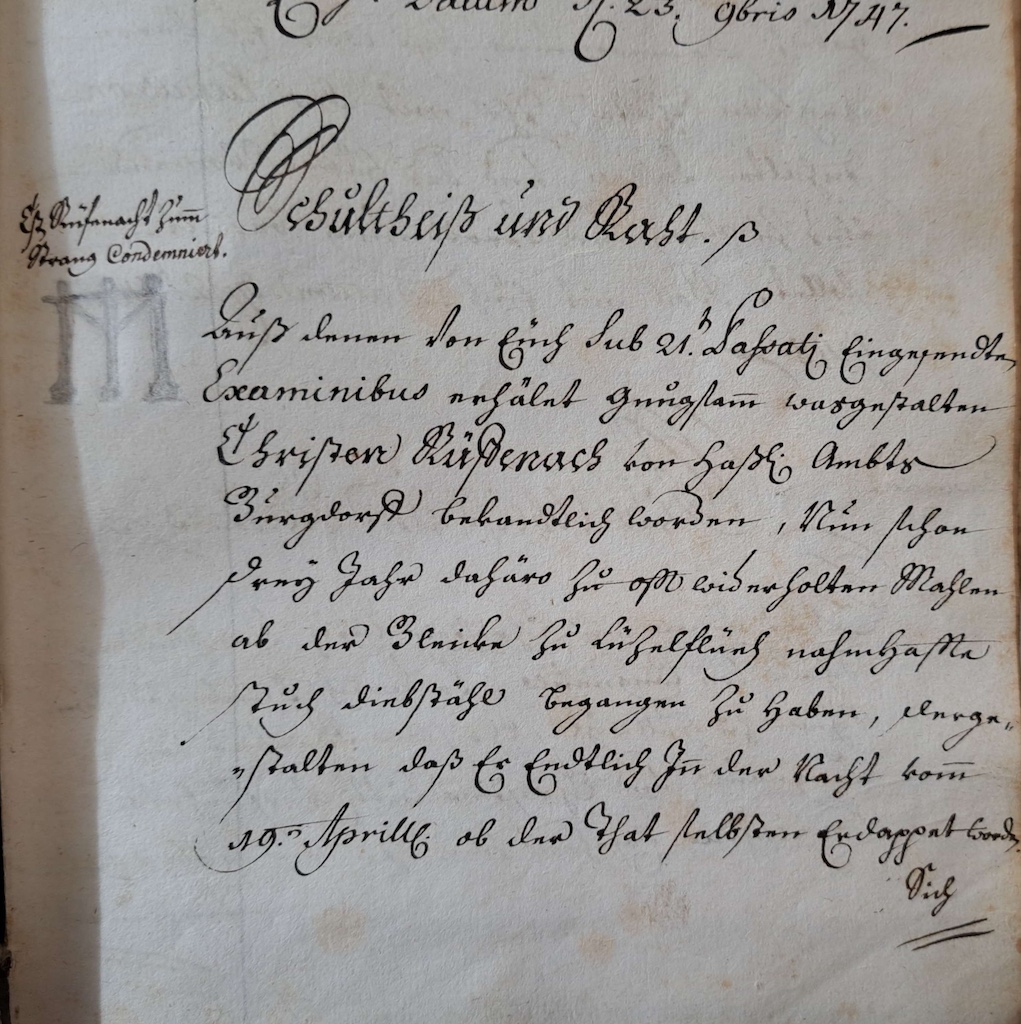 Datum d. 23. 9bris 1747.
Chr Rüfenacht zum
Strang Condemniert.
Schultheiß und Raht. ß
Auß denen Von Eüch Sub 21.t Passati Eingesendten
Examinibus erhälet gnugsam wasgestalten
Christen Rüffenach von Haßli Ambts
Burgdorff bekandtlich worden, Nun schon
drey Jahr dahäro zu offt widerholten Mahlen
ab der Bleicke zu Lützelflüeh nahmhaffte
stuck diebstähl begangen zu haben, derge„
„stalten daß Er Endtlich In der Nacht vom
19.n Aprill. ob der That selbsten Erdappet worden,
Sich